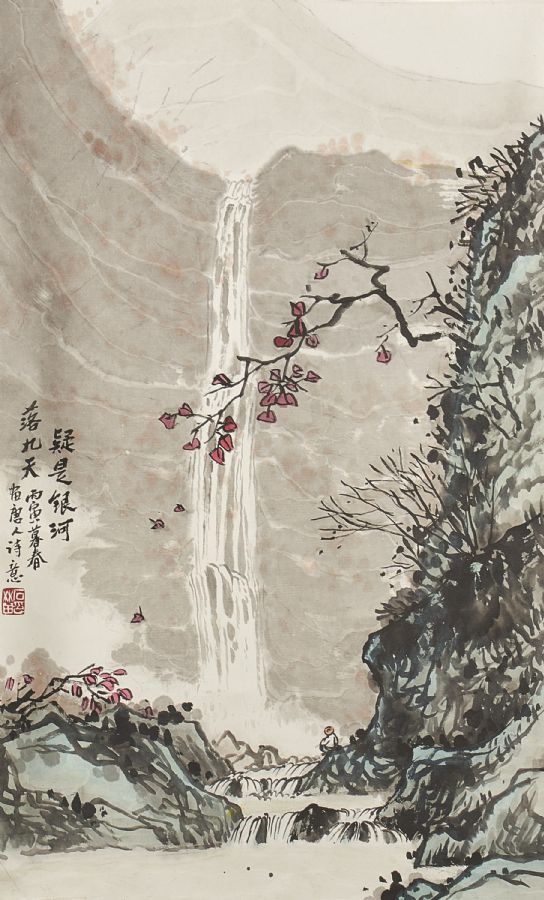 疑是银河
落九天丙寅暮春
画唐人诗意